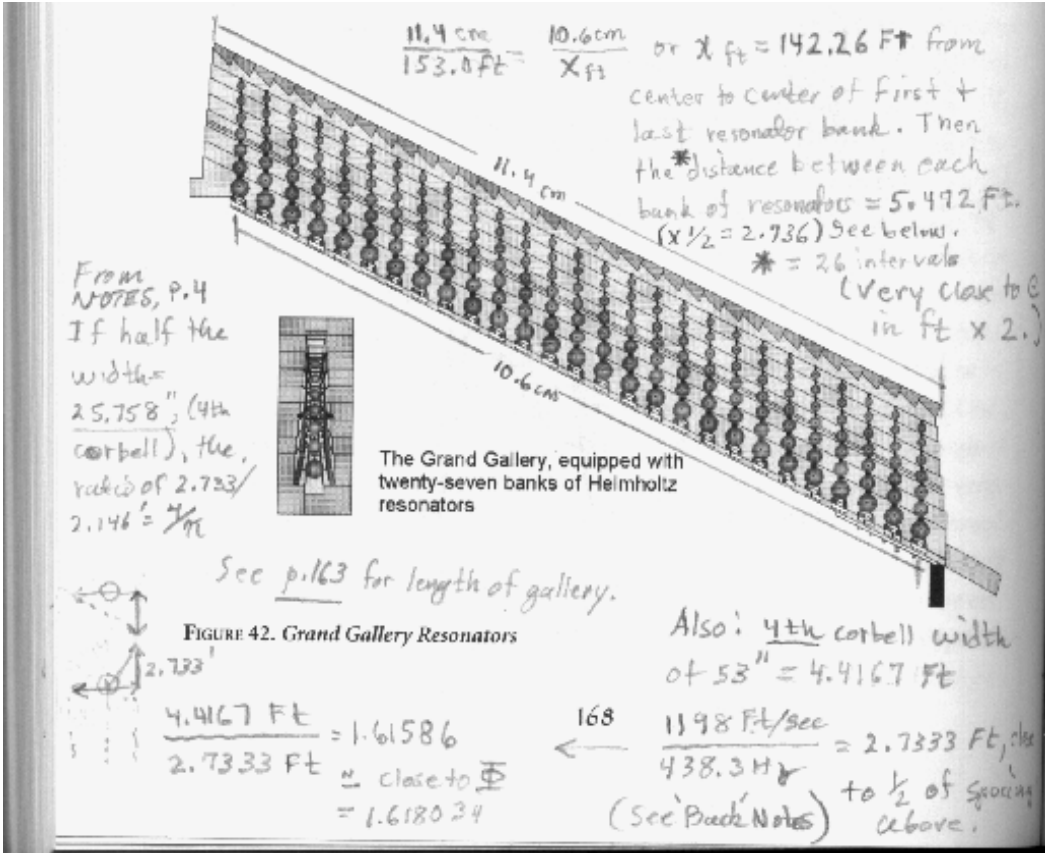 11.4 cm / 153.0 ft = 10.6 cm / X ft or X ft = 142.26 Ft from
center to center of first +
last resonator bank. Then
the *distance between each
bank of resonators = 5.472 Ft.
(x 1/2 = 2.736) See below.
* = 26 intervals
(very close to e
in ft x 2.)
11.4 cm
10.6 cm
From
NOTES, P.4
If half the
width=
25.758", (4th
corbell), the
ratio of 2.733/
2.146' = 4/π
The Grand Gallery, equipped with
twenty-seven banks of Helmholtz
resonators
See p.163 for length of gallery.
FIGURE 42. Grand Gallery Resonators
2.733'
4.4167 Ft / 2.7333 Ft = 1.61586
≈ close to Φ
= 1.618034
168
Also: 4th corbell width
of 53" = 4.4167 Ft
← 1198 Ft/sec / 438.3 Hz = 2.7333 Ft, close
to 1/2 of spacing
above.
(See 'Back' Notes)